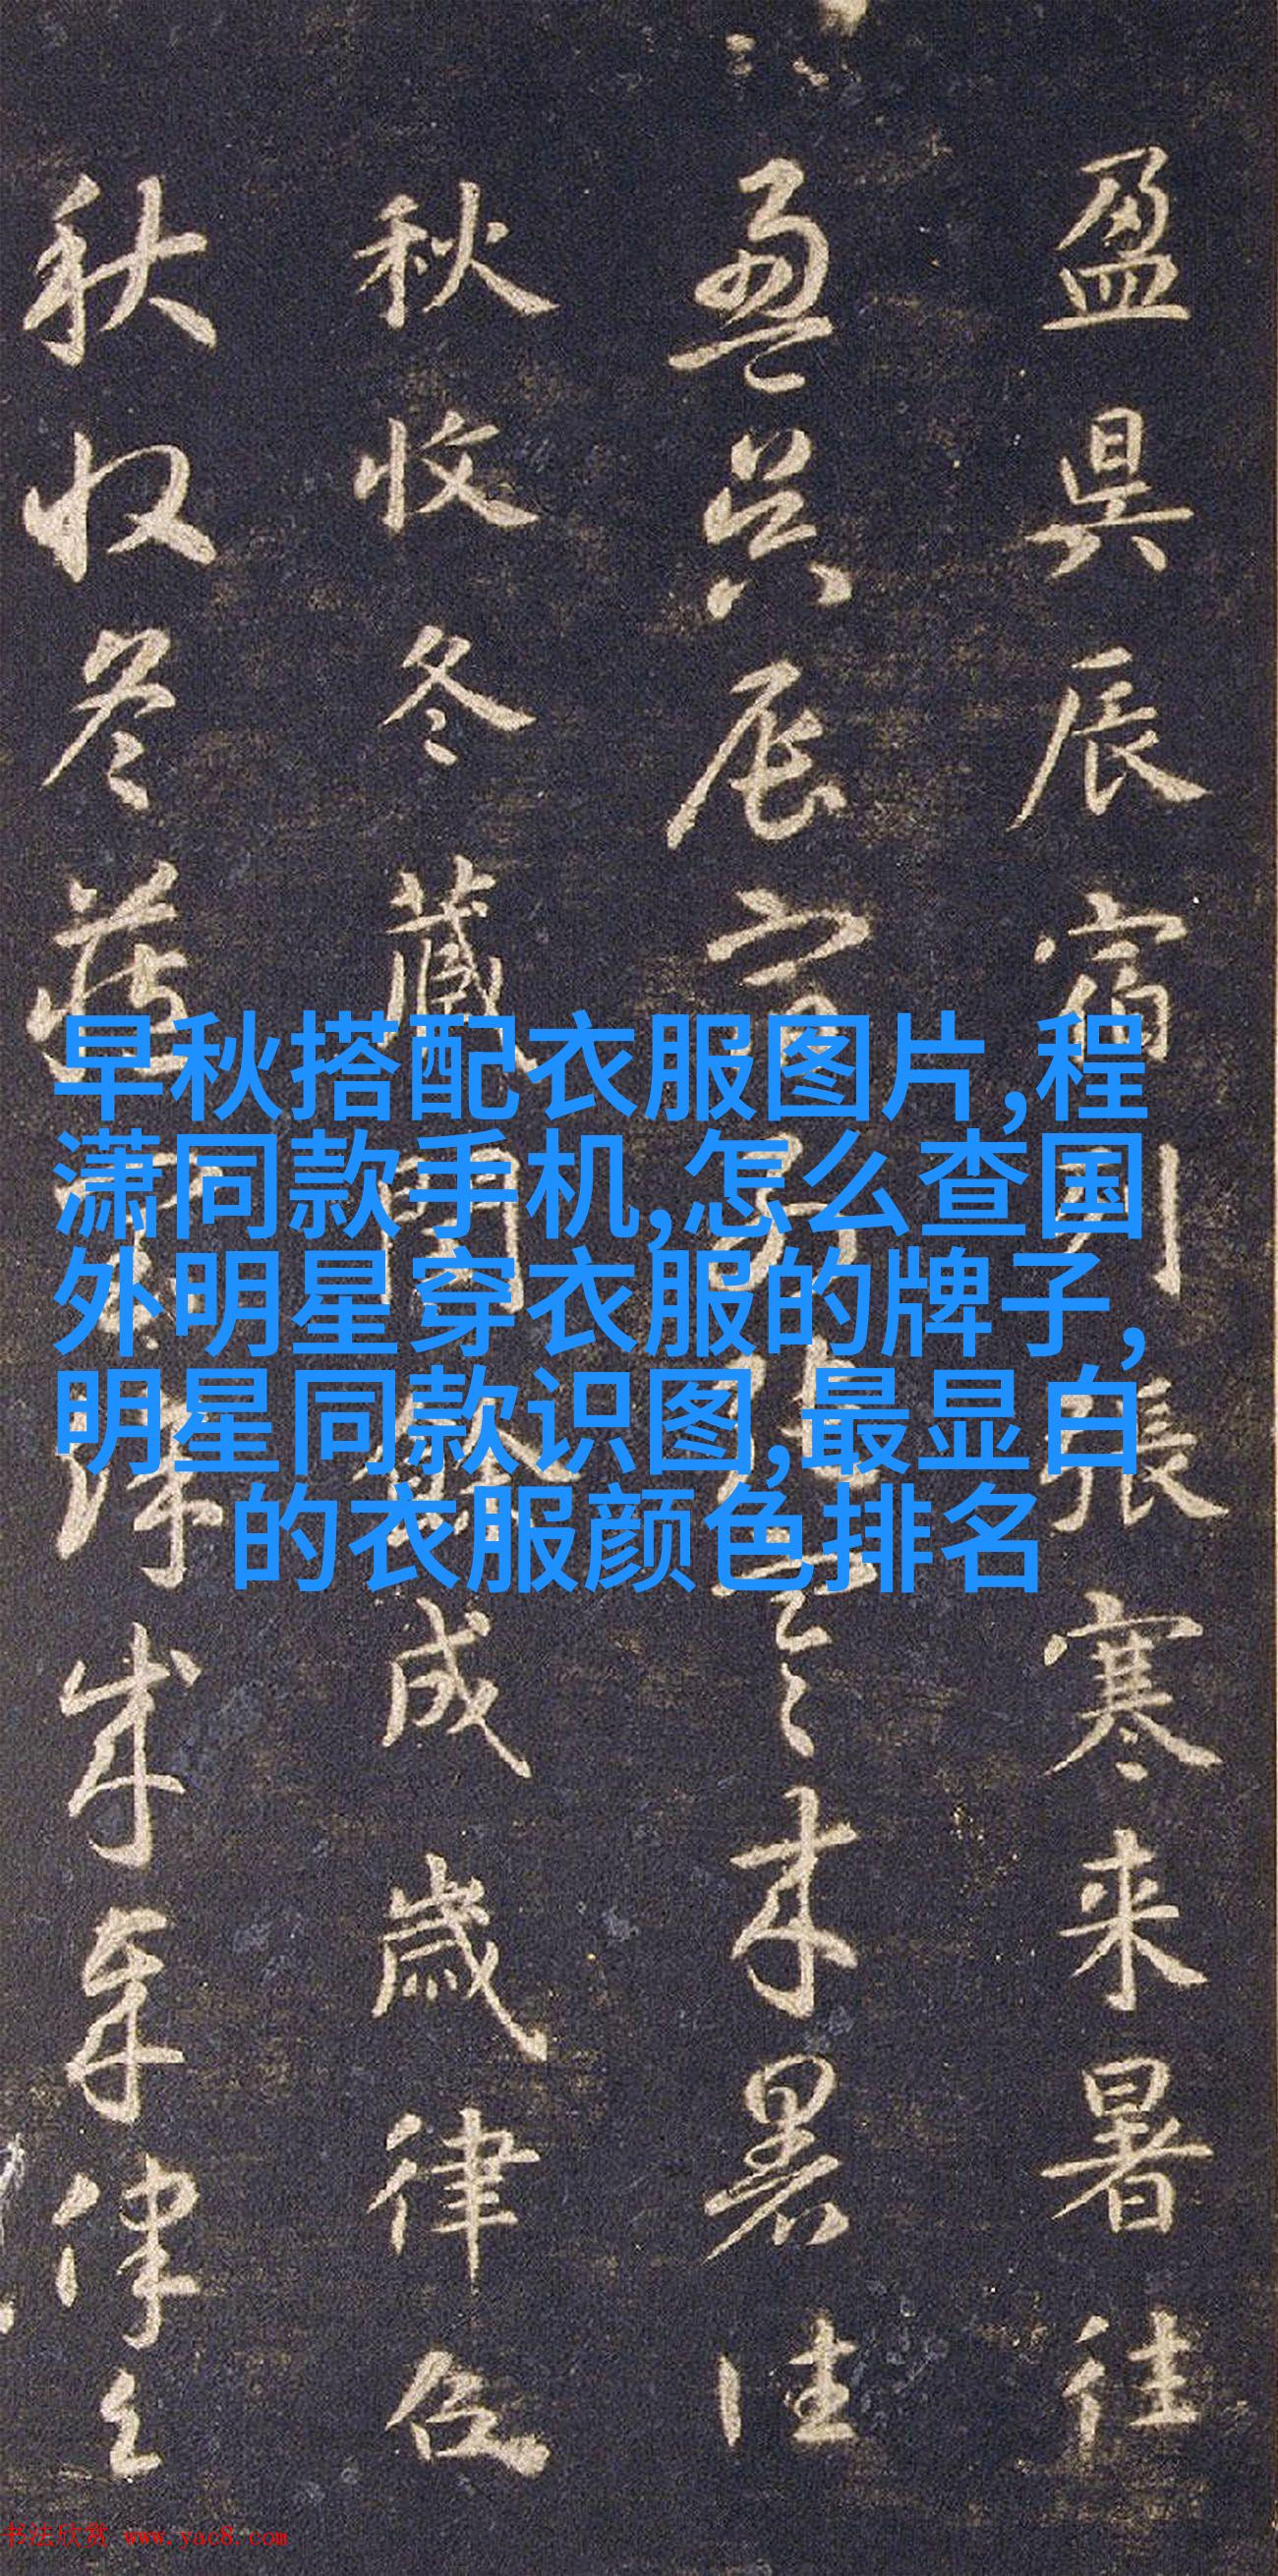 盈昃辰宿列張寒来暑往
盈昃辰宿張寒来暑往
秋收冬藏閏餘成歲律召
秋收冬藏餘成歲律召
早秋搭配衣服图片,程
潇同款手机,怎么查国
外明星穿衣服的牌子,
明星同款识图,最显白
的衣服颜色排名
书法欣赏 www.yac8.com